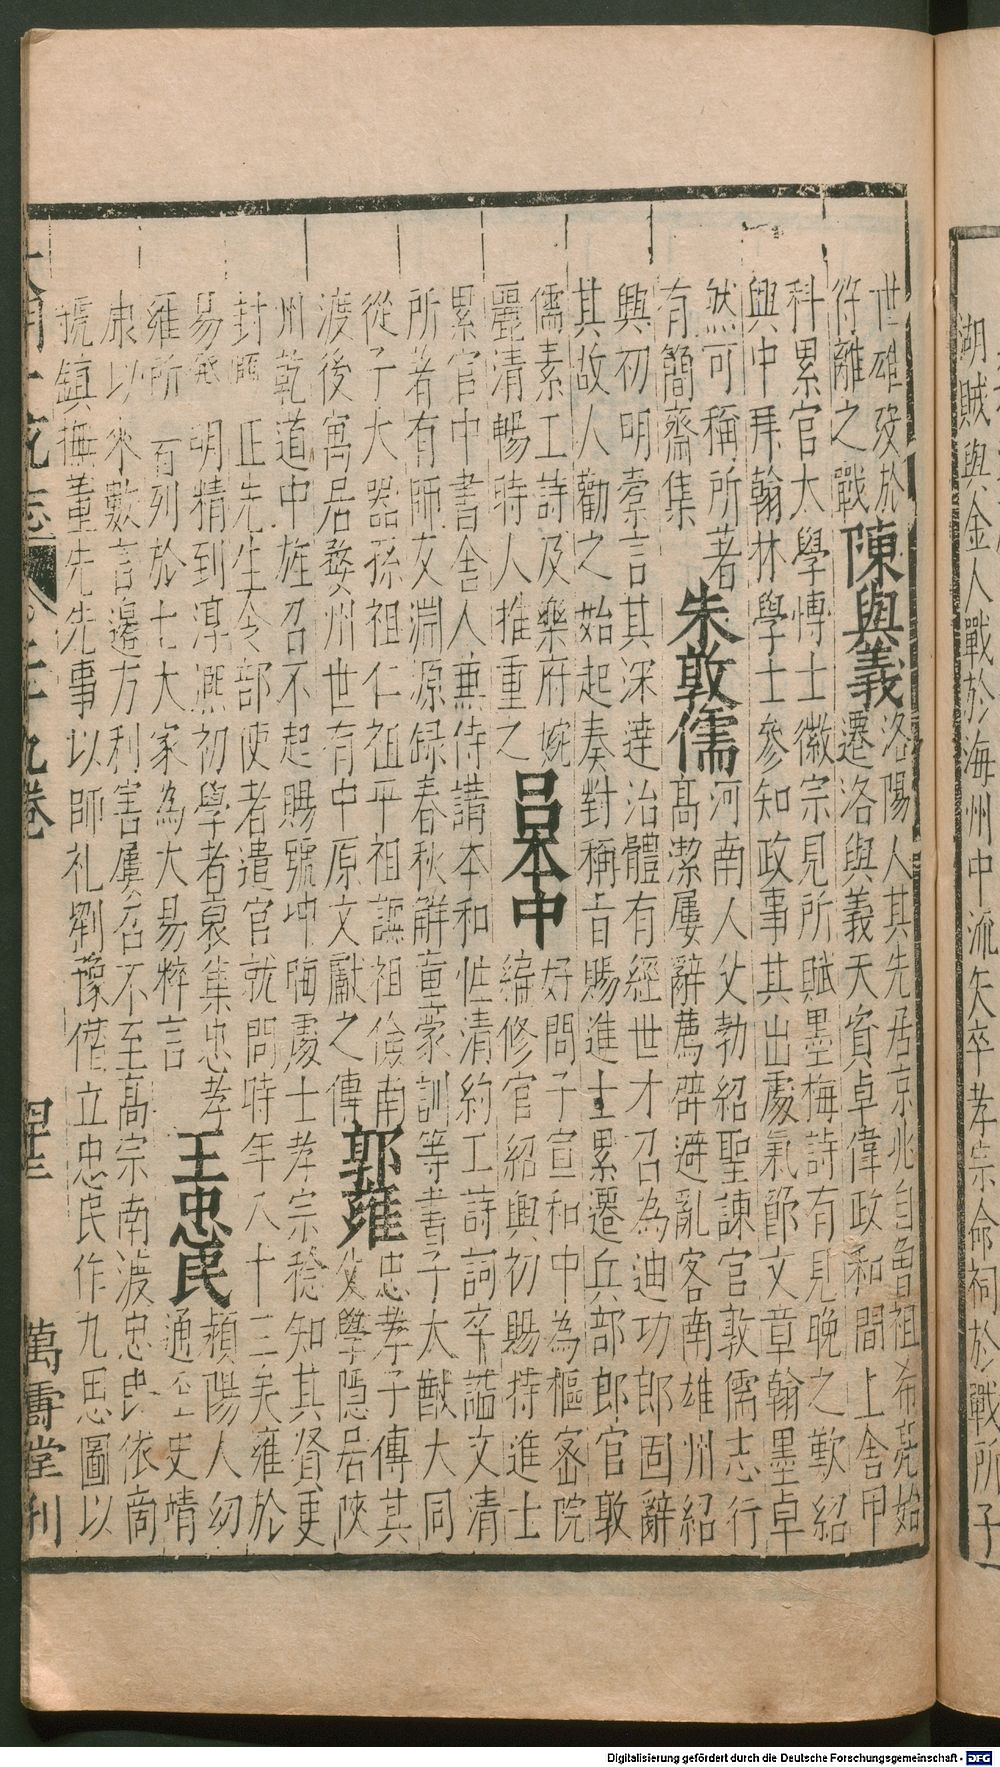 湖賊與金人戰於海州中流矢卒孝宗命祠於戰所子
世雄歿於
符離之戰
陳與義
洛陽人其先居京兆自魯祖希亮始
遷洛與義天資卓偉政和間上舍甲
科累官太學博士徽宗見所賦墨梅詩有見晚之歎紹
興中拜翰林學士參知政事其出處氣節文章翰墨卓
然可稱所著
有簡齋集
朱敦儒
河南人父勃紹聖諫官敦儒志行
高潔屢辭薦辟避亂客南雄州紹
興初明橐言其深達治體有經世才召為迪功郎固辭
其故人勸之始起奏對稱旨賜進士累遷兵部郎官敦
儒素工詩及樂府婉
麗清暢時人推重之
呂本中
好問子宣和中為樞密院
編修官紹興初賜持進士
累官中書舍人兼侍講本和性清約工詩詞卒謚文清
所著有師友淵源録春秋解童蒙訓等書子大猷大同
從子大器孫祖仁祖平祖謳祖儉南
渡後寓居婺州世有中原文獻之傳
郭雍
忠孝子傳其
父學隱居陝
州乾道中旌召不起賜號冲晦處士孝宗稔知其賢更
封頥正先生令部使者遣官就問時年八十三矣雍於
易發明精到淳熙初學者裒集忠孝
雍所百列於七大家為大易粹言
王忠民
潁陽人幼
通史靖
康以來數言邊方利害屢召不至高宗南渡忠民依啇
虢鎮撫董先先事以師礼劉豫僣立忠民作九思圖以
大明一統志 二十九卷 萬壽堂刊
Digitalisierung gefördert durch die Deutsche Forschungsgemeinschaft - DFG